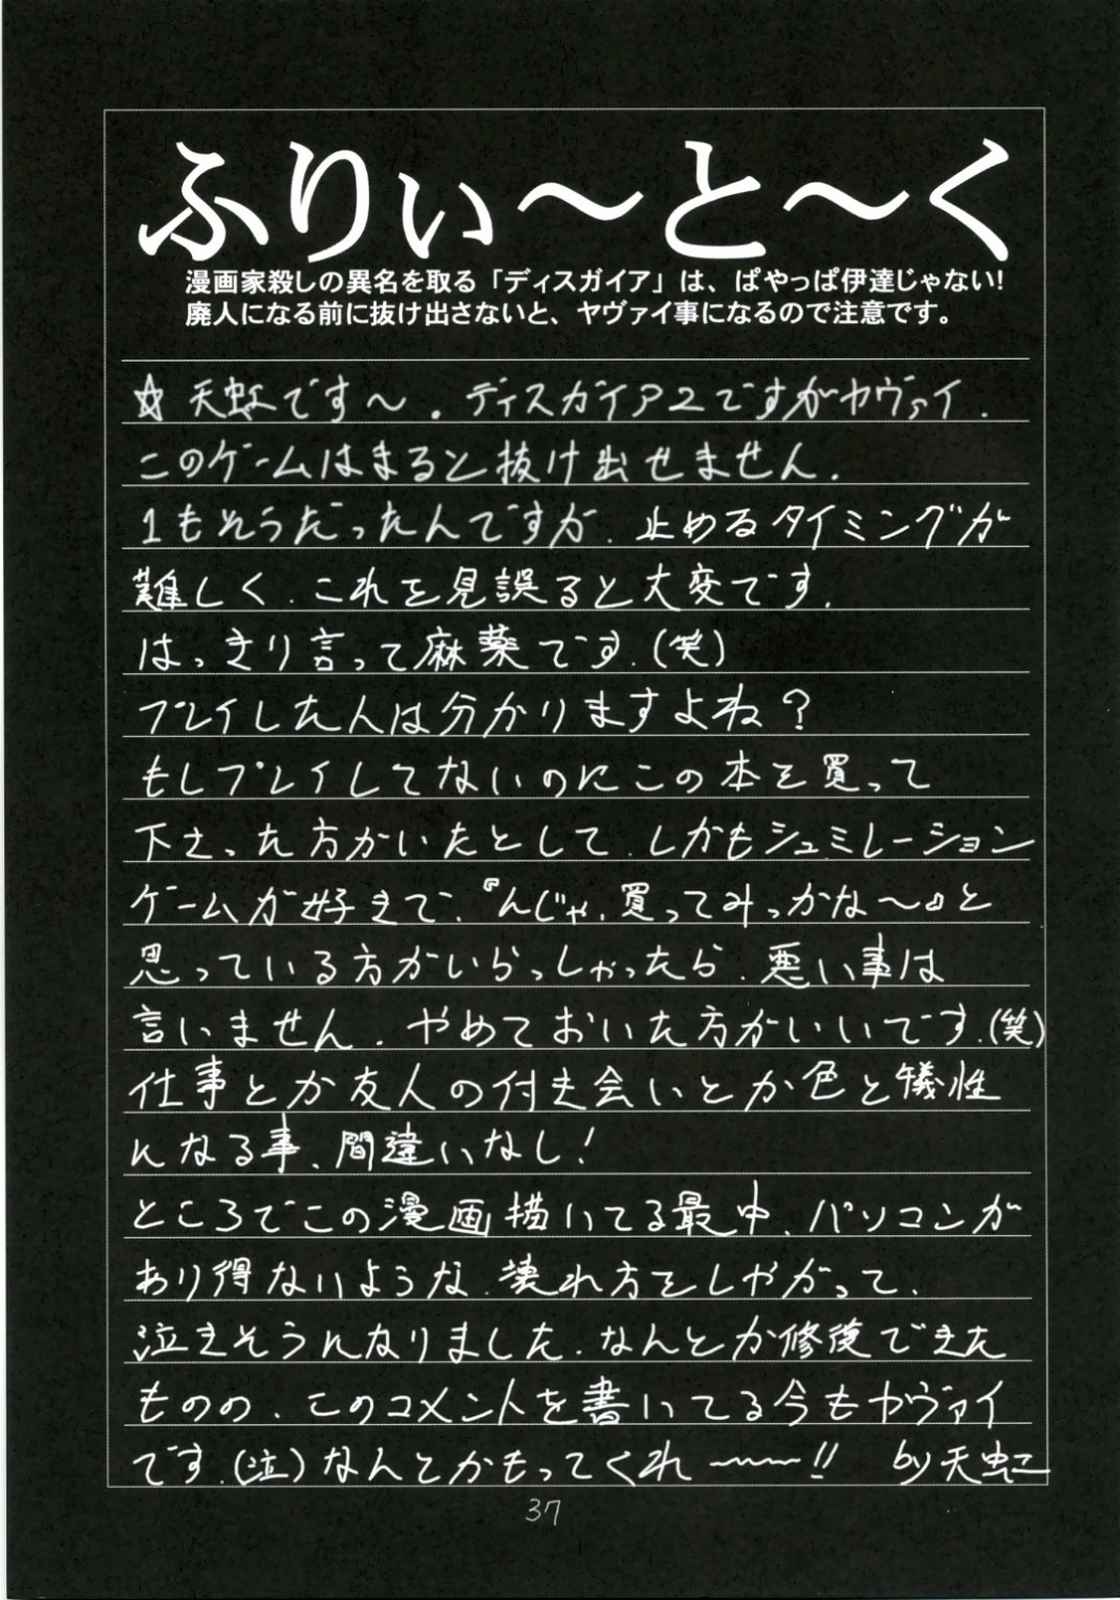 ふりぃ～と～く
漫画家殺しの異名を取る「ディスガイア」は、ぱやっぱ伊達じゃない!
廃人になる前に抜け出さないと、ヤヴァイ事になるので注意です。
☆天虹です～。ディスガイア2ですがヤヴァイ.
このゲームはまると抜け出せません.
1もそうだったんですが.止めるタイミングが
難しく.これを見誤ると大変です.
はっきり言って麻薬です.(笑)
プレイした人は分かりますよね?
もしプレイしてないのにこの本を買って
下さった方がいたとして.しかもシュミレーション
ゲームが好きで、『んじゃ、買ってみっかな～』と
思っている方がいらっしゃったら.悪い事は
言いません.やめておいた方がいいです.(笑)
仕事とか友人の付き会いとか色と犠性
になる事、間違いなし!
ところでこの漫画描いてる最中、パソコンが
あり得ないような.壊れ方をしやがって.
泣きそうになりました.なんとか修復できた
ものの.このコメントを書いてる今もヤヴァイ
です.(泣)なんとかもってくれ～～～!! by天虹
37